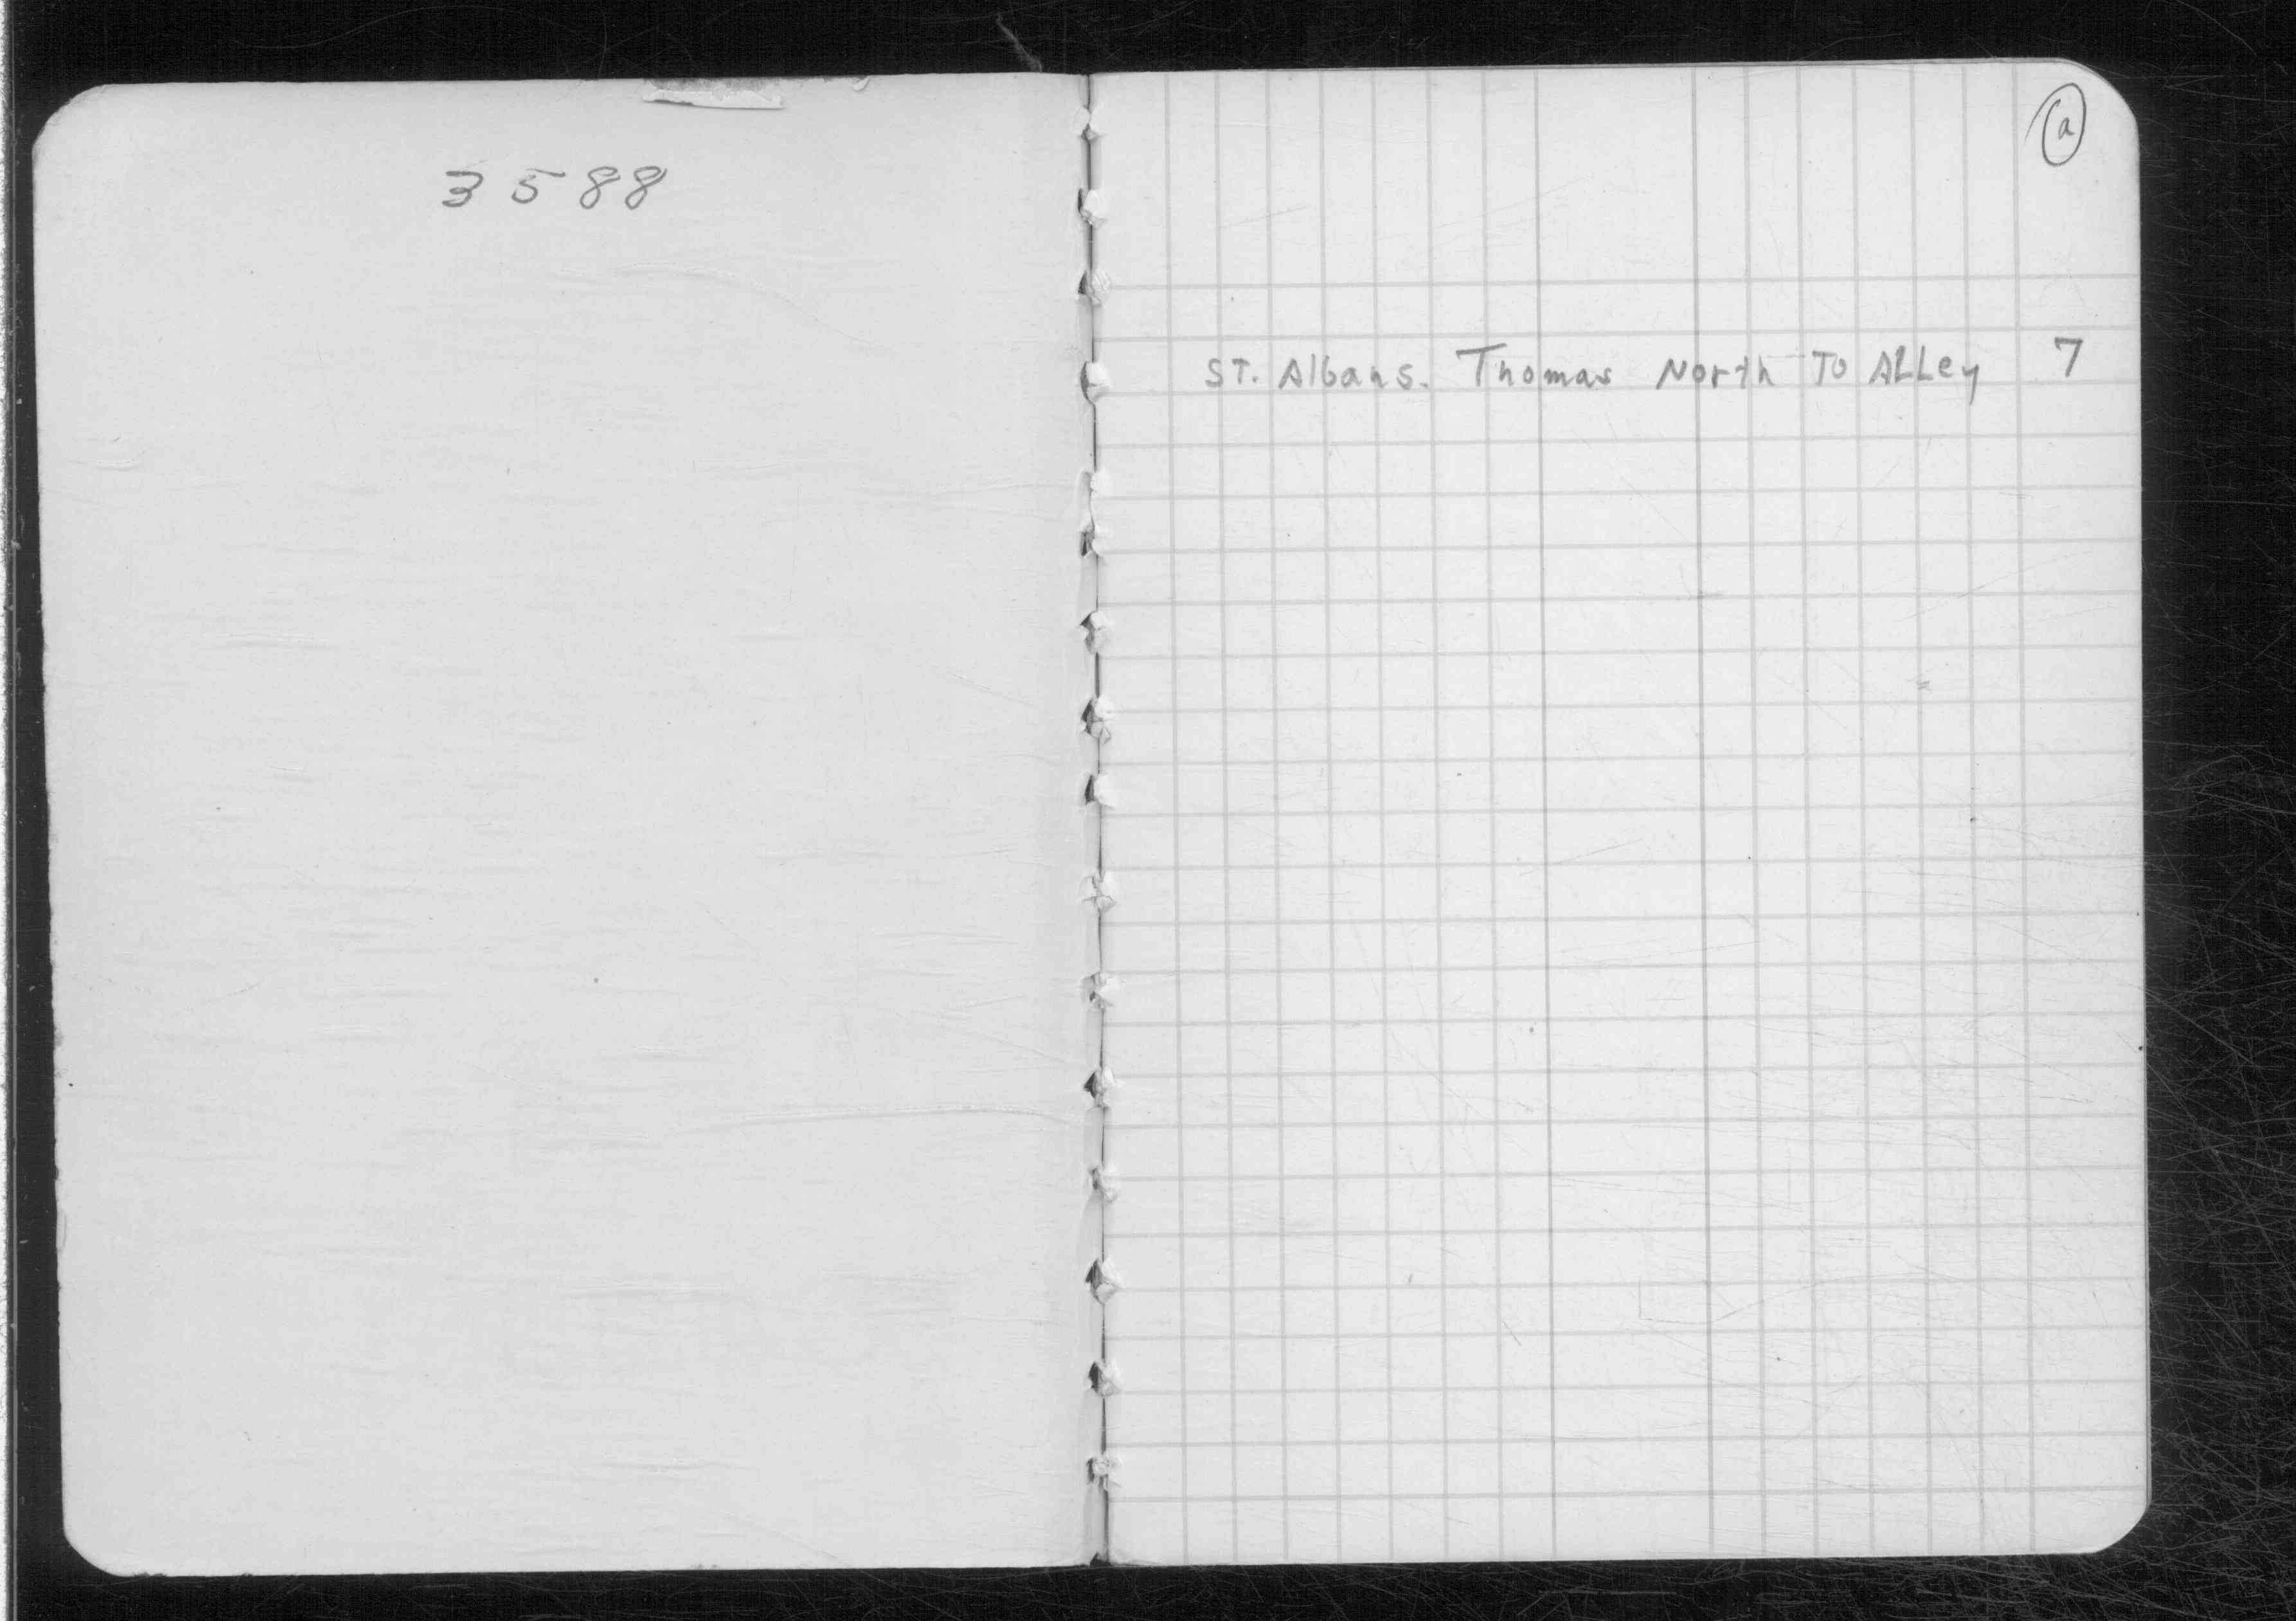 3588
a
ST. Albans. Thomas North To ALLey 7